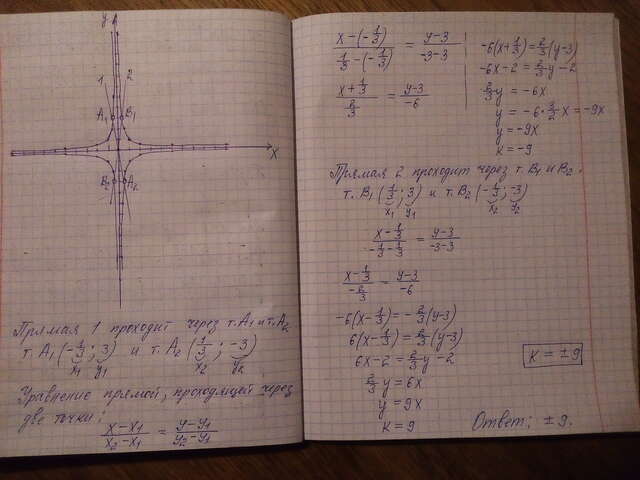 y
1 2
A₁ B₁
X
B₂ A₂
Прямая 1 проходит через т. A₁ и т. A₂
т. A₁ (-1/3 ; 3) и т. A₂ (1/3 ; -3)
x₁ y₁ x₂ y₂
Уравнение прямой, проходящей через
две точки:
(x-x₁)/(x₂-x₁) = (y-y₁)/(y₂-y₁)
(x-(-1/3))/(1/3-(-1/3)) = (y-3)/(-3-3)
(x+1/3)/(2/3) = (y-3)/(-6)
-6(x+1/3)=2/3(y-3)
-6x-2=2/3y-2
2/3y = -6x
y = -6*3/2x = -9x
y=-9x
k=-9
Прямая 2 проходит через т. B₁ и B₂.
т. B₁ (1/3 ; 3) и т. B₂ (-1/3 ; -3)
x₁ y₁ x₂ y₂
(x-1/3)/(-1/3-1/3) = (y-3)/(-3-3)
(x-1/3)/(-2/3) = (y-3)/(-6)
-6(x-1/3)=-2/3(y-3)
6(x-1/3)=2/3(y-3)
6x-2=2/3y-2
2/3y=6x
y=9x
k=9
k=±9
Ответ: ±9.